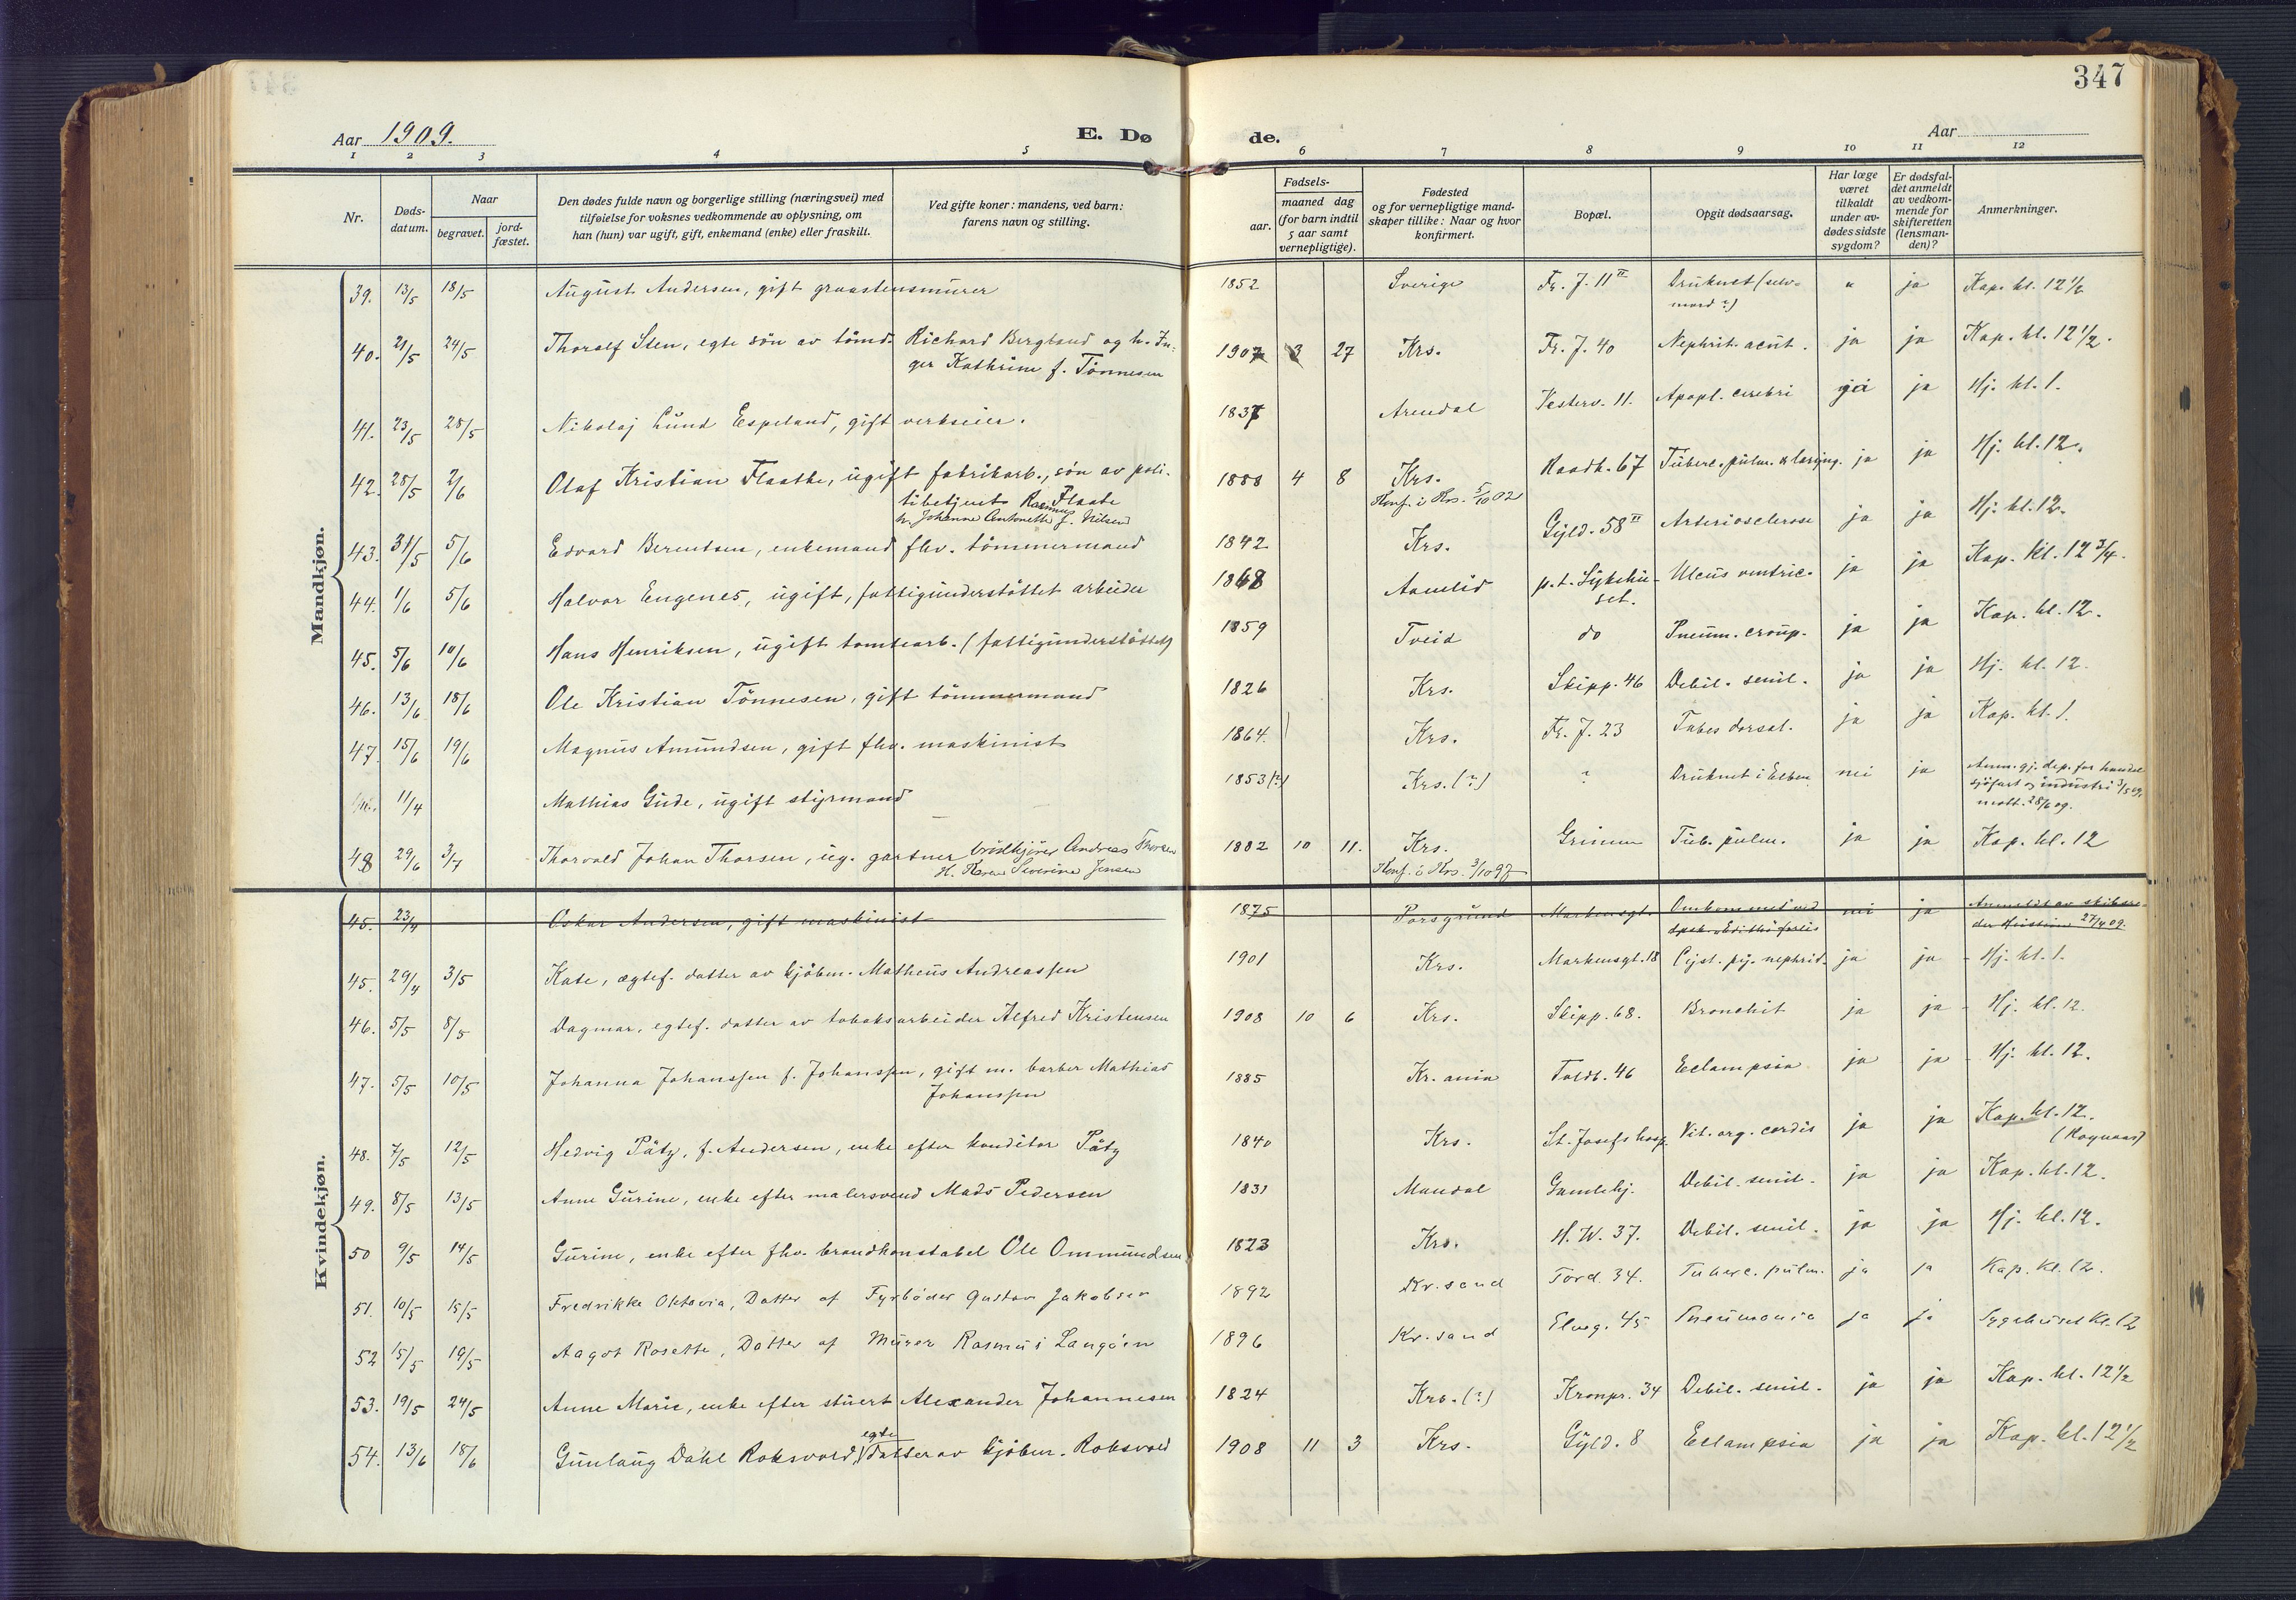 347
Aar 1909.
E. Dø
de.
Aar
1 2 3 4 5 6 7 8 9 10 11 12
Nr.
Døds-
datum.
Naar
begravet.
jord-
fæstet.
Den dødes fulde navn og borgerlige stilling (næringsvei) med
tilføielse for voksnes vedkommende av oplysning, om
han (hun) var ugift, gift, enkemand (enke) eller fraskilt.
Ved gifte koner: mandens, ved barn:
farens navn og stilling.
Fødsels-
aar.
maaned dag
(for barn indtil
5 aar samt
vernepligtige).
Fødested
og for vernepligtige mand-
skaper tillike: Naar og hvor
konfirmert.
Bopæl.
Opgit dødsaarsag.
Har læge
været
tilkaldt
under av-
dødes sidste
sygdom?
Er dødsfal-
det anmeldt
av vedkom-
mende for
skifteretten
(lensman-
den)?
Anmerkninger.
Mandkjøn.
39. 13/5 18/5 August Andersen, gift graastensmurer 1852 Sverige Fr. J. 11 II Druknet (selv- " ja Kap. kl. 12 1/2
mord?)
40. 21/5 24/5 Thoralf Sten, egte søn av tømd. Richard Berglund og h. In- 1907 3 27 Krs. Fr. J. 40 Nephrit. acut. ja ja Kap. kl. 12 1/2.
ger Kathrine f. Tönnesen
41. 23/5 28/5 Nikolaj Lund Espeland, gift verkseier. 1837 Arendal Vesterv. 11. Apopl. cerebri ja ja Hj. kl. 1.
42. 28/5 2/6 Olaf Kristian Flaathe, ugift fabrikarb., søn av poli- 1888 4 8 Krs. Raadh. 67 Tuberc. pulm. & laryng. ja ja Hj. kl. 12.
tibetjent Rasmus Flaate Konf. i Krs. 5/10 02
h. Johanne Antonette f. Nilsen
43. 31/5 5/6 Edvard Berentsen, enkemand fhv. tömmermand 1842 Krs. Gyld. 58 II Arteriosclerose ja ja Hj. kl. 12.
44. 1/6 5/6 Halvor Eugenes, ugift, fattigunderstöttet arbeider 1868 Aamlid p.t. Sykehu- Ulcus ventric. ja ja Kap. kl. 12 3/4.
set.
45. 5/6 10/6 Hans Henriksen, ugift tomtearb. (fattigunderstöttet) 1859 Tveid do Pneum. croup. ja ja Kap. kl. 12.
46. 13/6 18/6 Ole Kristian Tönnesen, gift tömmermand 1826 Krs. Skipp. 46 Debil. senil. ja ja Hj. kl. 12.
47. 15/6 19/6 Magnus Amundsen, gift fhv. maskinist 1864. Krs. Fr. J. 23 Tabes dorsal. ja ja Kap. kl. 1.
11/4 Mathias Gude, ugift styrmand 1853(?) Krs. (?) ? Druknet i Elben nei ja Anm. gj. dep. for handel
sjöfart og industri 3/5 09.
mott. 28/6 09.
48 29/6 3/7 Thorvald Johan Thorsen, ug. gartner 1882 10 11. Krs. Grimm Tub. pulm. ja ja Kap. kl. 12
Andreas Thorsen
H. Karen Severine Jensen Konf. i Krs. 3/10 97
Kvindekjøn.
45. 23/4 Oskar Andersen, gift maskinist 1875 Porsgrund Markensgt. Omkommet ved nei ja Anmeldt av skibsre-
27/4 09.
45. 29/4 3/5 Kate, ægtef. datter av kjöbm. Matheus Andreassen 1901 Krs. Markensgt. 18 Cyst. py. nephrid. ja ja Hj. kl. 1.
46. 5/5 8/5 Dagmar, egtef. datter av tobaksarbeider Alfred Kristensen 1908 10 6 Krs. Skipp. 68. Bronchit ja ja Hj. kl. 12.
47. 5/5 10/5 Johanna Johanssen f. Johanssen, gift m. barber Mathias 1885 Kr. ania Toldb. 46 Eclampsia ja ja Hj. kl. 12.
Johanssen
48. 7/5 12/5 Hedvig Pätz, f. Andersen, enke efter konditor Pätz 1840 Krs. St. Josefs hosp. Vit. org. cordis ja ja Kap. kl. 12.
49. 8/5 13/5 Anne Gurine, enke efter malersvend Mads Pedersen 1831 Mandal Gamlehj. Debil. senil. ja ja Kap. kl. 12.
50 9/5 14/5 Gurine, enke efter fhv. brandkonstabel Ole Ommundsen 1823 Krs. H. W. 37. Debil. senil. ja ja Hj. kl. 12.
51. 10/5 15/5 Fredrikke Oktavia, Datter af Fyrböder Gustav Jakobsen 1892 Kr. sand Tord. 34. Tuberc. pulm. ja ja Kap. Kl. 12.
52 15/5 19/5 Aagot Rosette, Datter af Murer Rasmus Langöen 1896 Kr. sand Elveg. 45 Pneumonia ja ja Sygehuset Kl. 12
53. 19/5 24/5 Anne Marie, enke efter stuert Alexander Johannesen 1824 Krs. (?) Kronpr. 34 Debil. senil. ja ja Kap. kl. 12 1/2
54. 13/6 18/6 Gunlaug Dahl Roksvold, egte datter av kjöbm. Roksvold 1908 11 3 Krs. Gyld. 8 Eclampsia ja ja Kap. kl. 12 1/2